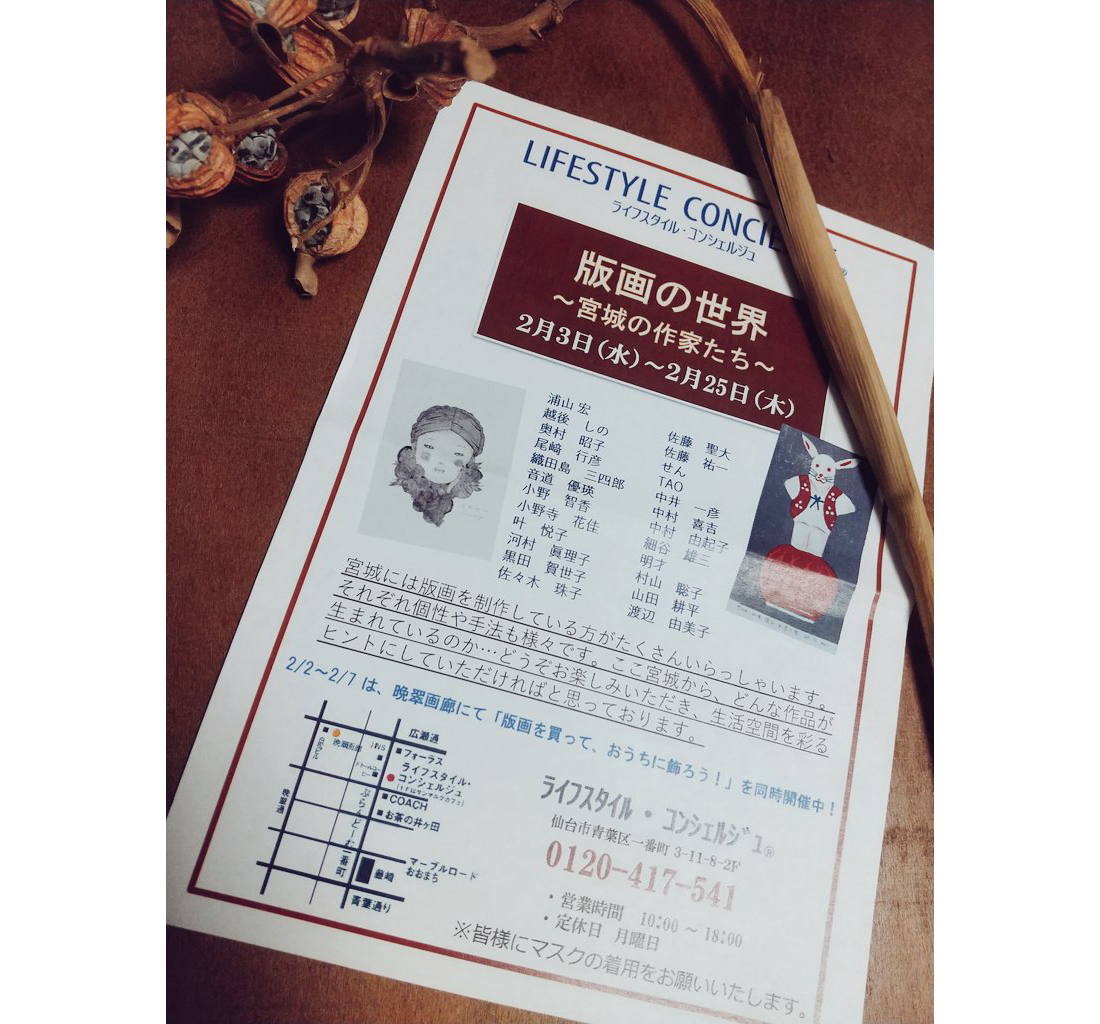 LIFESTYLE CONCIE
ライフスタイル・コンシェルジュ
版画の世界
～宮城の作家たち～
2月3日(水)～2月25日(木)
浦山 宏
越後 しの
奥村 昭子
尾﨑 行彦
織田島 三四郎
音道 優瑛
小野 智香
小野寺 花佳
叶 悦子
河村 眞理子
黒田 賀世子
佐々木 珠子
佐藤 聖大
佐藤 祐一
せん
TAO
中井 一彦
中村 喜吉
中村 由起子
細谷 雄三
明才
村山 聡子
山田 耕平
渡辺 由美子
宮城には版画を制作している方がたくさんいらっしゃいます。
それぞれ個性や手法も様々です。ここ宮城から、どんな作品が
生まれているのか…どうぞお楽しみいただき、生活空間を彩る
ヒントにしていただければと思っております。
2/2～2/7 は、晩翠画廊にて「版画を買って、おうちに飾ろう！」を同時開催中！
広瀬通
フォーラス
ライフスタイル・
コンシェルジュ
COACH
お茶の井ヶ田
晩翠通
ぶらんどーむ一番町
藤崎
マーブルロード
おおまち
青葉通り
ライフスタイル・コンシェルジュ®
仙台市青葉区一番町 3-11-8-2F
0120-417-541
・営業時間 10:00 ～ 18:00
・定休日 月曜日
※皆様にマスクの着用をお願いいたします。